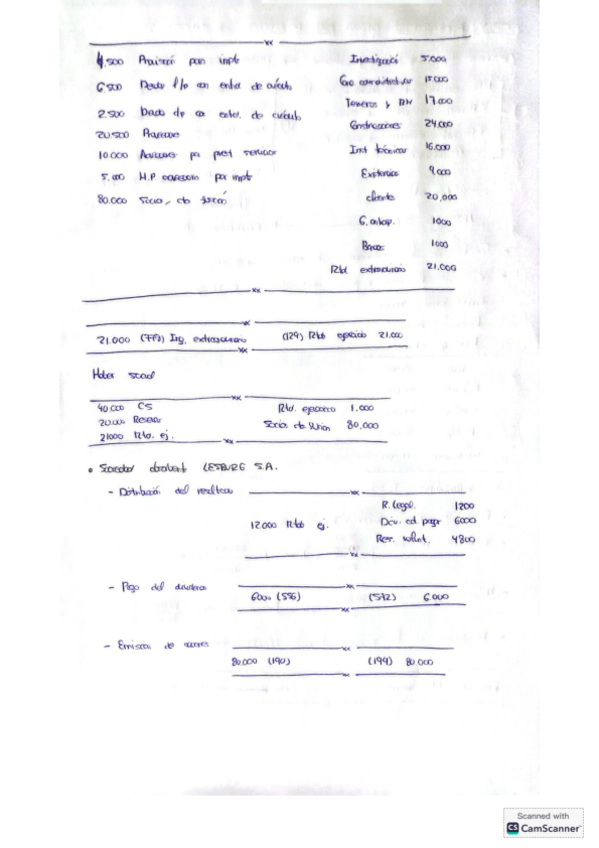 4.500 para impto Investigació 5.000
6.500 l/p con entid. de crédito 15.000
2.500 c/p con entid. de crédito Terrenos y BN 17.000
20.500 Construcciones 24.000
10.000 Acreedores por prest servicios Inst técnicas 16.000
5.000 H.P acreedora por impto Existencias 9.000
80.000 Socios, cta fusión clientes 20.000
G. anticip. 1000
Bancos 1000
Rtdo extraordinario 21.000
21.000 (778) Ing. extraordinario (129) Rtdo ejercicio 21.000
Haber social
40.000 CS Rtdo. ejercicio 1.000
20.000 Reservas Socios cta fusión 80.000
21000 Rtdo. ej.
• Sociedad absorbente LESBURG S.A.
- Distribución del resultado
R. Legal. 1200
12.000 Rtdo ej. Div. ed pagar 6000
Res. volunt. 4800
- Pago del dividendo
6000 (526) (572) 6.000
- Emisión de acciones
80.000 (190) (194) 80.000
Scanned with
CS CamScanner